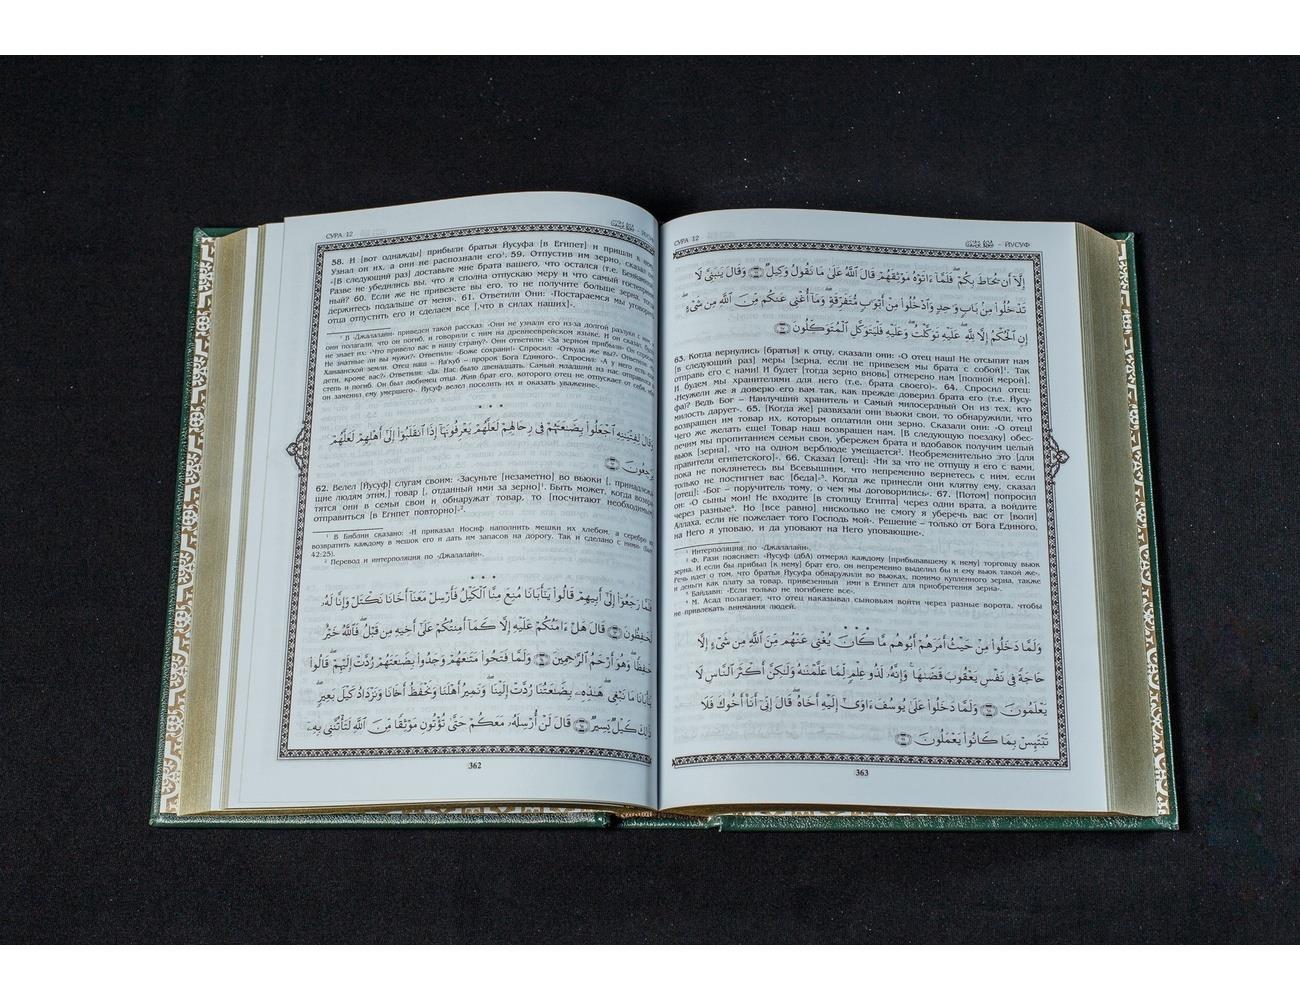 СУРА 12
58. И [вот однажды] прибыли братья Йусуфа [в Египет] и пришли к
Узнал он их, а они не распознали его¹. 59. Отпустив им зерно, сказал
«[В следующий раз] доставьте мне брата вашего, что остался (т.е.
Разве не убедились вы, что я сполна отпускаю меру и что самый
ный? 60. Если же не привезете вы его, то не получите больше зерна,
держитесь подальше от меня». 61. Ответили Они: «Постараемся мы уговорить
отца отпустить его и сделаем все [,что в силах наших]».
¹ В «Джалалайн» приведен такой рассказ: «Они не узнали его из-за долгой разлуки с
они полагали, что он погиб, и говорили с ним на древнееврейском языке. И он сказал,
не знает их: «Что привело вас в нашу страну?». Они ответили: «За зерном прибыли» Он
Не знатные ли вы мужи?» Ответили: «Боже сохрани!» Спросил: «Откуда же вы?» Ответили:
Ханаанской земли. Отец наш – Йа'куб – пророк Бога Единого». Спросил: «А у него есть
дети, кроме вас?» Ответили: «Да. Нас было двенадцать. Самый младший из нас отправился
степь и погиб. Он был любимец отца. Жив брат его, которого отец не отпускает от себя,
он заменил ему умершего». Йусуф велел поселить их и оказать уважение».
وَقَالَ لِفِتْيَٰنِهِ ٱجْعَلُوا۟ بِضَٰعَتَهُمْ فِى رِحَالِهِمْ لَعَلَّهُمْ يَعْرِفُونَهَآ إِذَا ٱنقَلَبُوٓا۟ إِلَىٰٓ أَهْلِهِمْ لَعَلَّهُمْ
يَرْجِعُونَ ٦٢
62. Велел [Йусуф] слугам своим: «Засуньте [незаметно] во вьюки [, принадлежа-
щие людям этим,] товар [, отданный ими за зерно]¹. Быть может, когда возвра-
тятся они в семьи свои и обнаружат товар, то [посчитают необходимым]
отправиться [в Египет повторно]»².
¹ В Библии сказано: «И приказал Иосиф наполнить мешки их хлебом, а серебро их
возвратить каждому в мешок его и дать им запасов на дорогу. Так и сделано с ними»
42:25).
² Перевод и интерполяция по «Джалалайн».
فَلَمَّا رَجَعُوٓا۟ إِلَىٰٓ أَبِيهِمْ قَالُوا۟ يَٰٓأَبَانَا مُنِعَ مِنَّا ٱلْكَيْلُ فَأَرْسِلْ مَعَنَآ أَخَانَا نَكْتَلْ وَإِنَّا لَهُۥ
لَحَٰفِظُونَ ٦٣ قَالَ هَلْ ءَامَنُكُمْ عَلَيْهِ إِلَّا كَمَآ أَمِنتُكُمْ عَلَىٰٓ أَخِيهِ مِن قَبْلُ ۖ فَٱللَّهُ خَيْرٌ
حَٰفِظًا ۖ وَهُوَ أَرْحَمُ ٱلرَّٰحِمِينَ ٦٤ وَلَمَّا فَتَحُوا۟ مَتَٰعَهُمْ وَجَدُوا۟ بِضَٰعَتَهُمْ رُدَّتْ إِلَيْهِمْ ۖ قَالُوا۟
يَٰٓأَبَانَا مَا نَبْغِى ۖ هَٰذِهِۦ بِضَٰعَتُنَا رُدَّتْ إِلَيْنَا ۖ وَنَمِيرُ أَهْلَنَا وَنَحْفَظُ أَخَانَا وَنَزْدَادُ كَيْلَ بَعِيرٍ ۖ
ذَٰلِكَ كَيْلٌ يَسِيرٌ ٦٥ قَالَ لَنْ أُرْسِلَهُۥ مَعَكُمْ حَتَّىٰ تُؤْتُونِ مَوْثِقًا مِّنَ ٱللَّهِ لَتَأْتُنَّنِى بِهِۦٓ
362
СУРА 12
ЙУСУФ
إِلَّآ أَن يُحَاطَ بِكُمْ ۖ فَلَمَّآ ءَاتَوْهُ مَوْثِقَهُمْ قَالَ ٱللَّهُ عَلَىٰ مَا نَقُولُ وَكِيلٌ ٦٦ وَقَالَ يَٰبَنِىَّ لَا
تَدْخُلُوا۟ مِنۢ بَابٍ وَٰحِدٍ وَٱدْخُلُوا۟ مِنْ أَبْوَٰبٍ مُّتَفَرِّقَةٍ ۖ وَمَآ أُغْنِى عَنكُم مِّنَ ٱللَّهِ مِن شَىْءٍ ۖ
إِنِ ٱلْحُكْمُ إِلَّا لِلَّهِ ۖ عَلَيْهِ تَوَكَّلْتُ ۖ وَعَلَيْهِ فَلْيَتَوَكَّلِ ٱلْمُتَوَكِّلُونَ ٦٧
63. Когда вернулись [братья] к отцу, сказали они: «О отец наш! Не отсыпят нам
[в следующий раз] меры [зерна, если не привезем мы брата с собой]¹. Так
отправь его с нами! И будет [тогда зерно вновь] отмерено нам [полной мерой].
И будем мы хранителями для него (т.е. брата своего)». 64. Спросил отец:
«Неужели же я доверю его вам так, как прежде доверил брата его (т.е. Йусу-
фа)? Ведь Бог – Наилучший хранитель и Самый милосердный Он из тех, кто
милость дарует». 65. [Когда же] развязали они вьюки свои, то обнаружили, что
возвращен им товар их, которым оплатили они зерно. Сказали они: «О отец!
Чего же желать еще! Товар наш возвращен нам. [В следующую поездку] обес-
печим мы пропитанием семьи свои, убережем брата и вдобавок получим целый
вьюк [зерна], что на одном верблюде умещается². Необременительно это [для
правителя египетского]». 66. Сказал [отец]: «Ни за что не отпущу я его с вами,
пока не поклянетесь вы Всевышним, что непременно вернетесь с ним, если
только не постигнет вас [беда]»³. Когда же принесли они клятву ему, сказал
[отец]: «Бог – поручитель тому, о чем мы договорились». 67. [Потом] попросил
он: «О сыны мои! Не входите [в столицу Египта] через одни врата, а войдите
через разные⁴. Но [все равно] нисколько не смогу я уберечь вас от [воли]
Аллаха, если не пожелает того Господь мой». Решение – только от Бога Единого,
на Него я уповаю, и да уповают на Него уповающие».
¹ Интерполяция по «Джалалайн».
² Ф. Рази поясняет: «Йусуф (дбА) отмерял каждому [прибывавшему к нему] торговцу вьюк
зерна. И если бы прибыл [к нему] брат его, он непременно выделил бы и ему вьюк такой же».
Речь идет о том, что братья Йусуфа обнаружили во вьюках, помимо купленного зерна, также
и деньги как плату за товар, привезенный ими в Египет для приобретения зерна».
³ Байдави: «Если только не погибнете все».
⁴ М. Асад полагает, что отец наказывал сыновьям войти через разные ворота, чтобы
не привлекать внимания людей.
وَلَمَّا دَخَلُوا۟ مِنْ حَيْثُ أَمَرَهُمْ أَبُوهُم مَّا كَانَ يُغْنِى عَنْهُم مِّنَ ٱللَّهِ مِن شَىْءٍ إِلَّا
حَاجَةً فِى نَفْسِ يَعْقُوبَ قَضَىٰهَا ۚ وَإِنَّهُۥ لَذُو عِلْمٍ لِّمَا عَلَّمْنَٰهُ وَلَٰكِنَّ أَكْثَرَ ٱلنَّاسِ لَا
يَعْلَمُونَ ٦٨ وَلَمَّا دَخَلُوا۟ عَلَىٰ يُوسُفَ ءَاوَىٰٓ إِلَيْهِ أَخَاهُ ۖ قَالَ إِنِّىٓ أَنَا۠ أَخُوكَ فَلَا
تَبْتَئِسْ بِمَا كَانُوا۟ يَعْمَلُونَ ٦٩
363